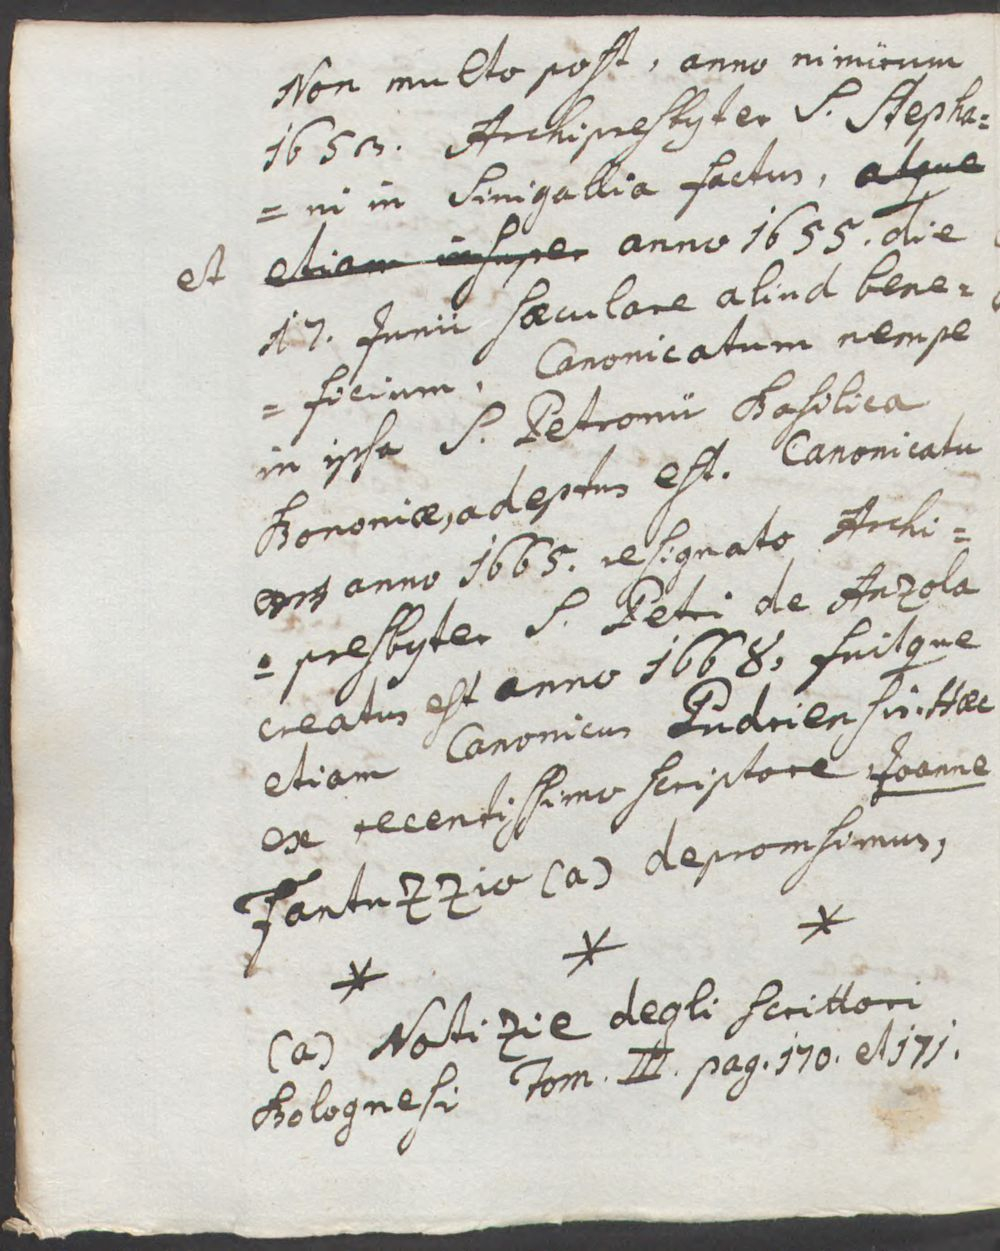 Non multo post, anno nimirum
1653. Archipresbyter S. Stepha=
= ni in Sinigallia factus, atque
et etiam insuper anno 1655. die
17. Junii sæculare aliud bene=
= ficium, Canonicatum nempe
in ipsa S. Petronii Basilica
Bononiæ, adeptus est. Canonicatu
anno 1665. resignato Archi=
= presbyter S. Petri de Anzola
creatus est anno 1668, fuitque
etiam Canonicus Pudriensis. Hæc
ex recentissimo scriptore, Joanne
Fantuzzio (a) depromsimus,
* * *
(a) Notizie degli scrittori
Bolognesi Tom. III. pag. 170. et 171.